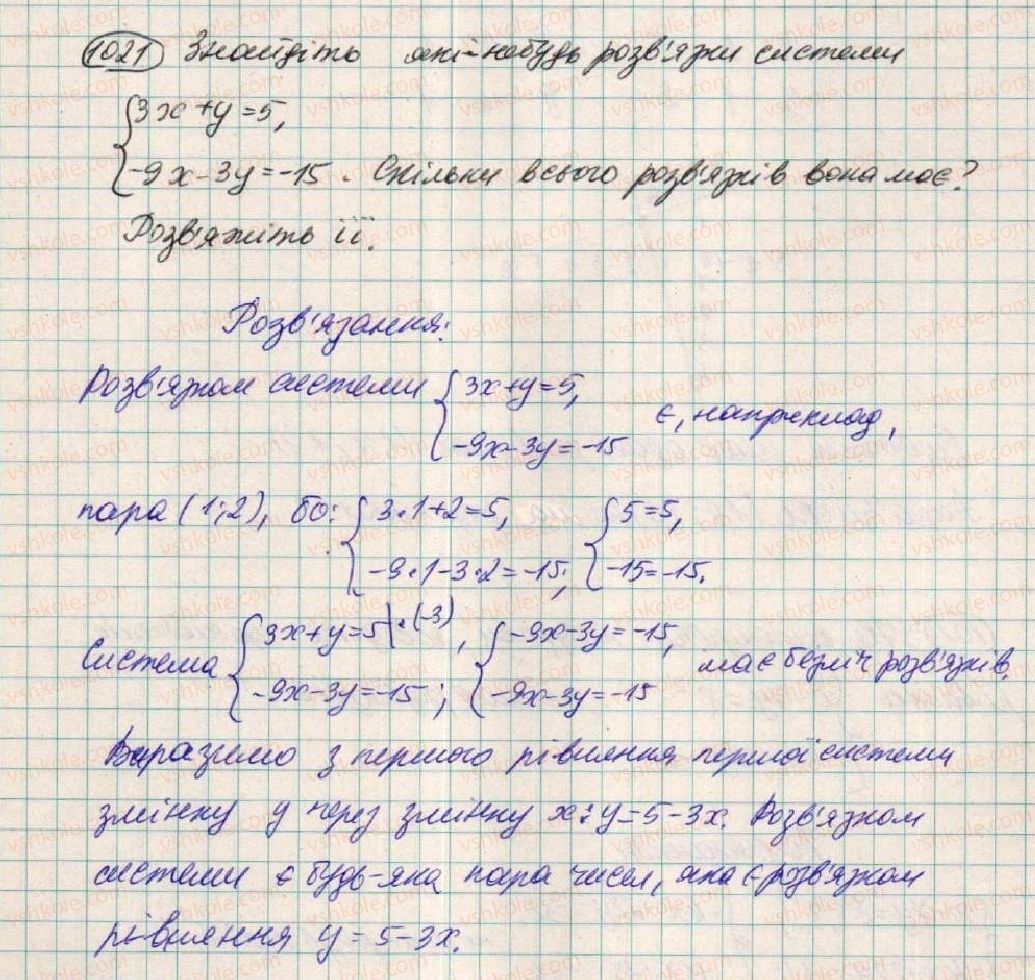 1021 Знайдіть які-небудь розв'язки системи
{3x+y=5,
-9x-3y=-15. Скільки всього розв'язків вона має?
Розв'яжіть її.
Розв'язання:
Розв'язком системи {3x+y=5, -9x-3y=-15 є, наприклад,
пара (1;2), бо: {3·1+2=5, -9·1-3·2=-15; {5=5, -15=-15.
Система {3x+y=5|·(-3), -9x-3y=-15; {-9x-3y=-15, -9x-3y=-15 має безліч розв'язків.
Виразимо з першого рівняння першої системи
змінну y через змінну x: y=5-3x. Розв'язком
системи є будь-яка пара чисел, яка є розв'язком
рівняння y=5-3x.
vshkole.com